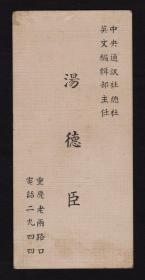 中央通訊社總社
英文編輯部主任
湯德臣
重慶老兩路口
電話二九四四